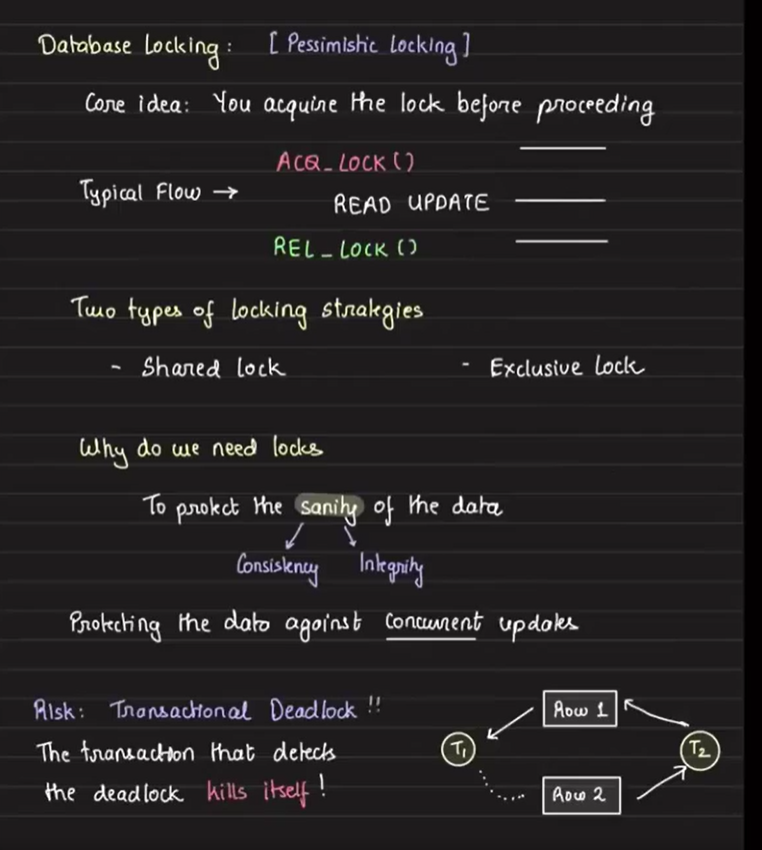 Database Locking: [Pessimistic Locking]
Core idea: You acquire the lock before proceeding
ACQ_LOCK()
Typical Flow →
READ UPDATE
REL_LOCK()
Two types of locking strategies
- Shared lock - Exclusive Lock
Why do we need locks
To protect the sanity of the data
Consistency Integrity
Protecting the data against concurrent updates
Risk: Transactional Deadlock !!
Row 1
The transaction that detects
T1 T2
the deadlock kills itself!
Row 2